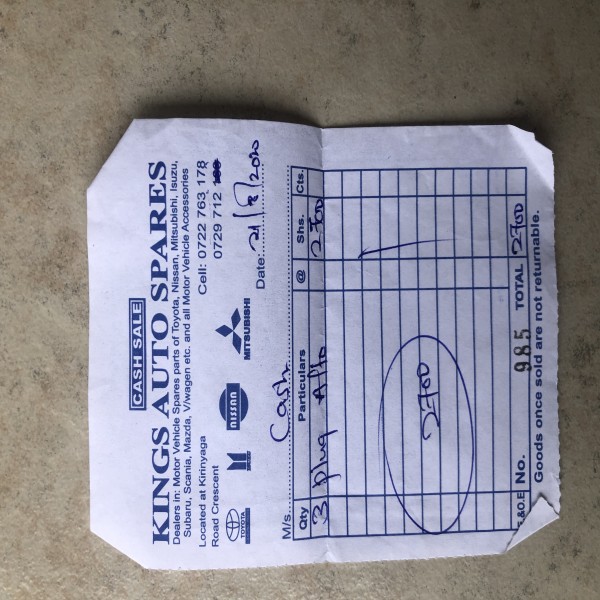 CASH SALE
KINGS AUTO SPARES
Dealers in: Motor Vehicle Spares parts of Toyota, Nissan, Mitsubishi, Isuzu,
Subaru, Scania, Mazda, V/wagen etc. and all Motor Vehicle Accessories
Located at Kirinyaga
Road Crescent
Cell: 0722 763 178
0729 712
TOYOTA
NISSAN
MITSUBISHI
Date: 21/8/2020
M/s Cash
Qty Particulars @ Shs. Cts.
3 Plug Alto 2700
2700
E.&O.E No. 985 TOTAL 2700
Goods once sold are not returnable.